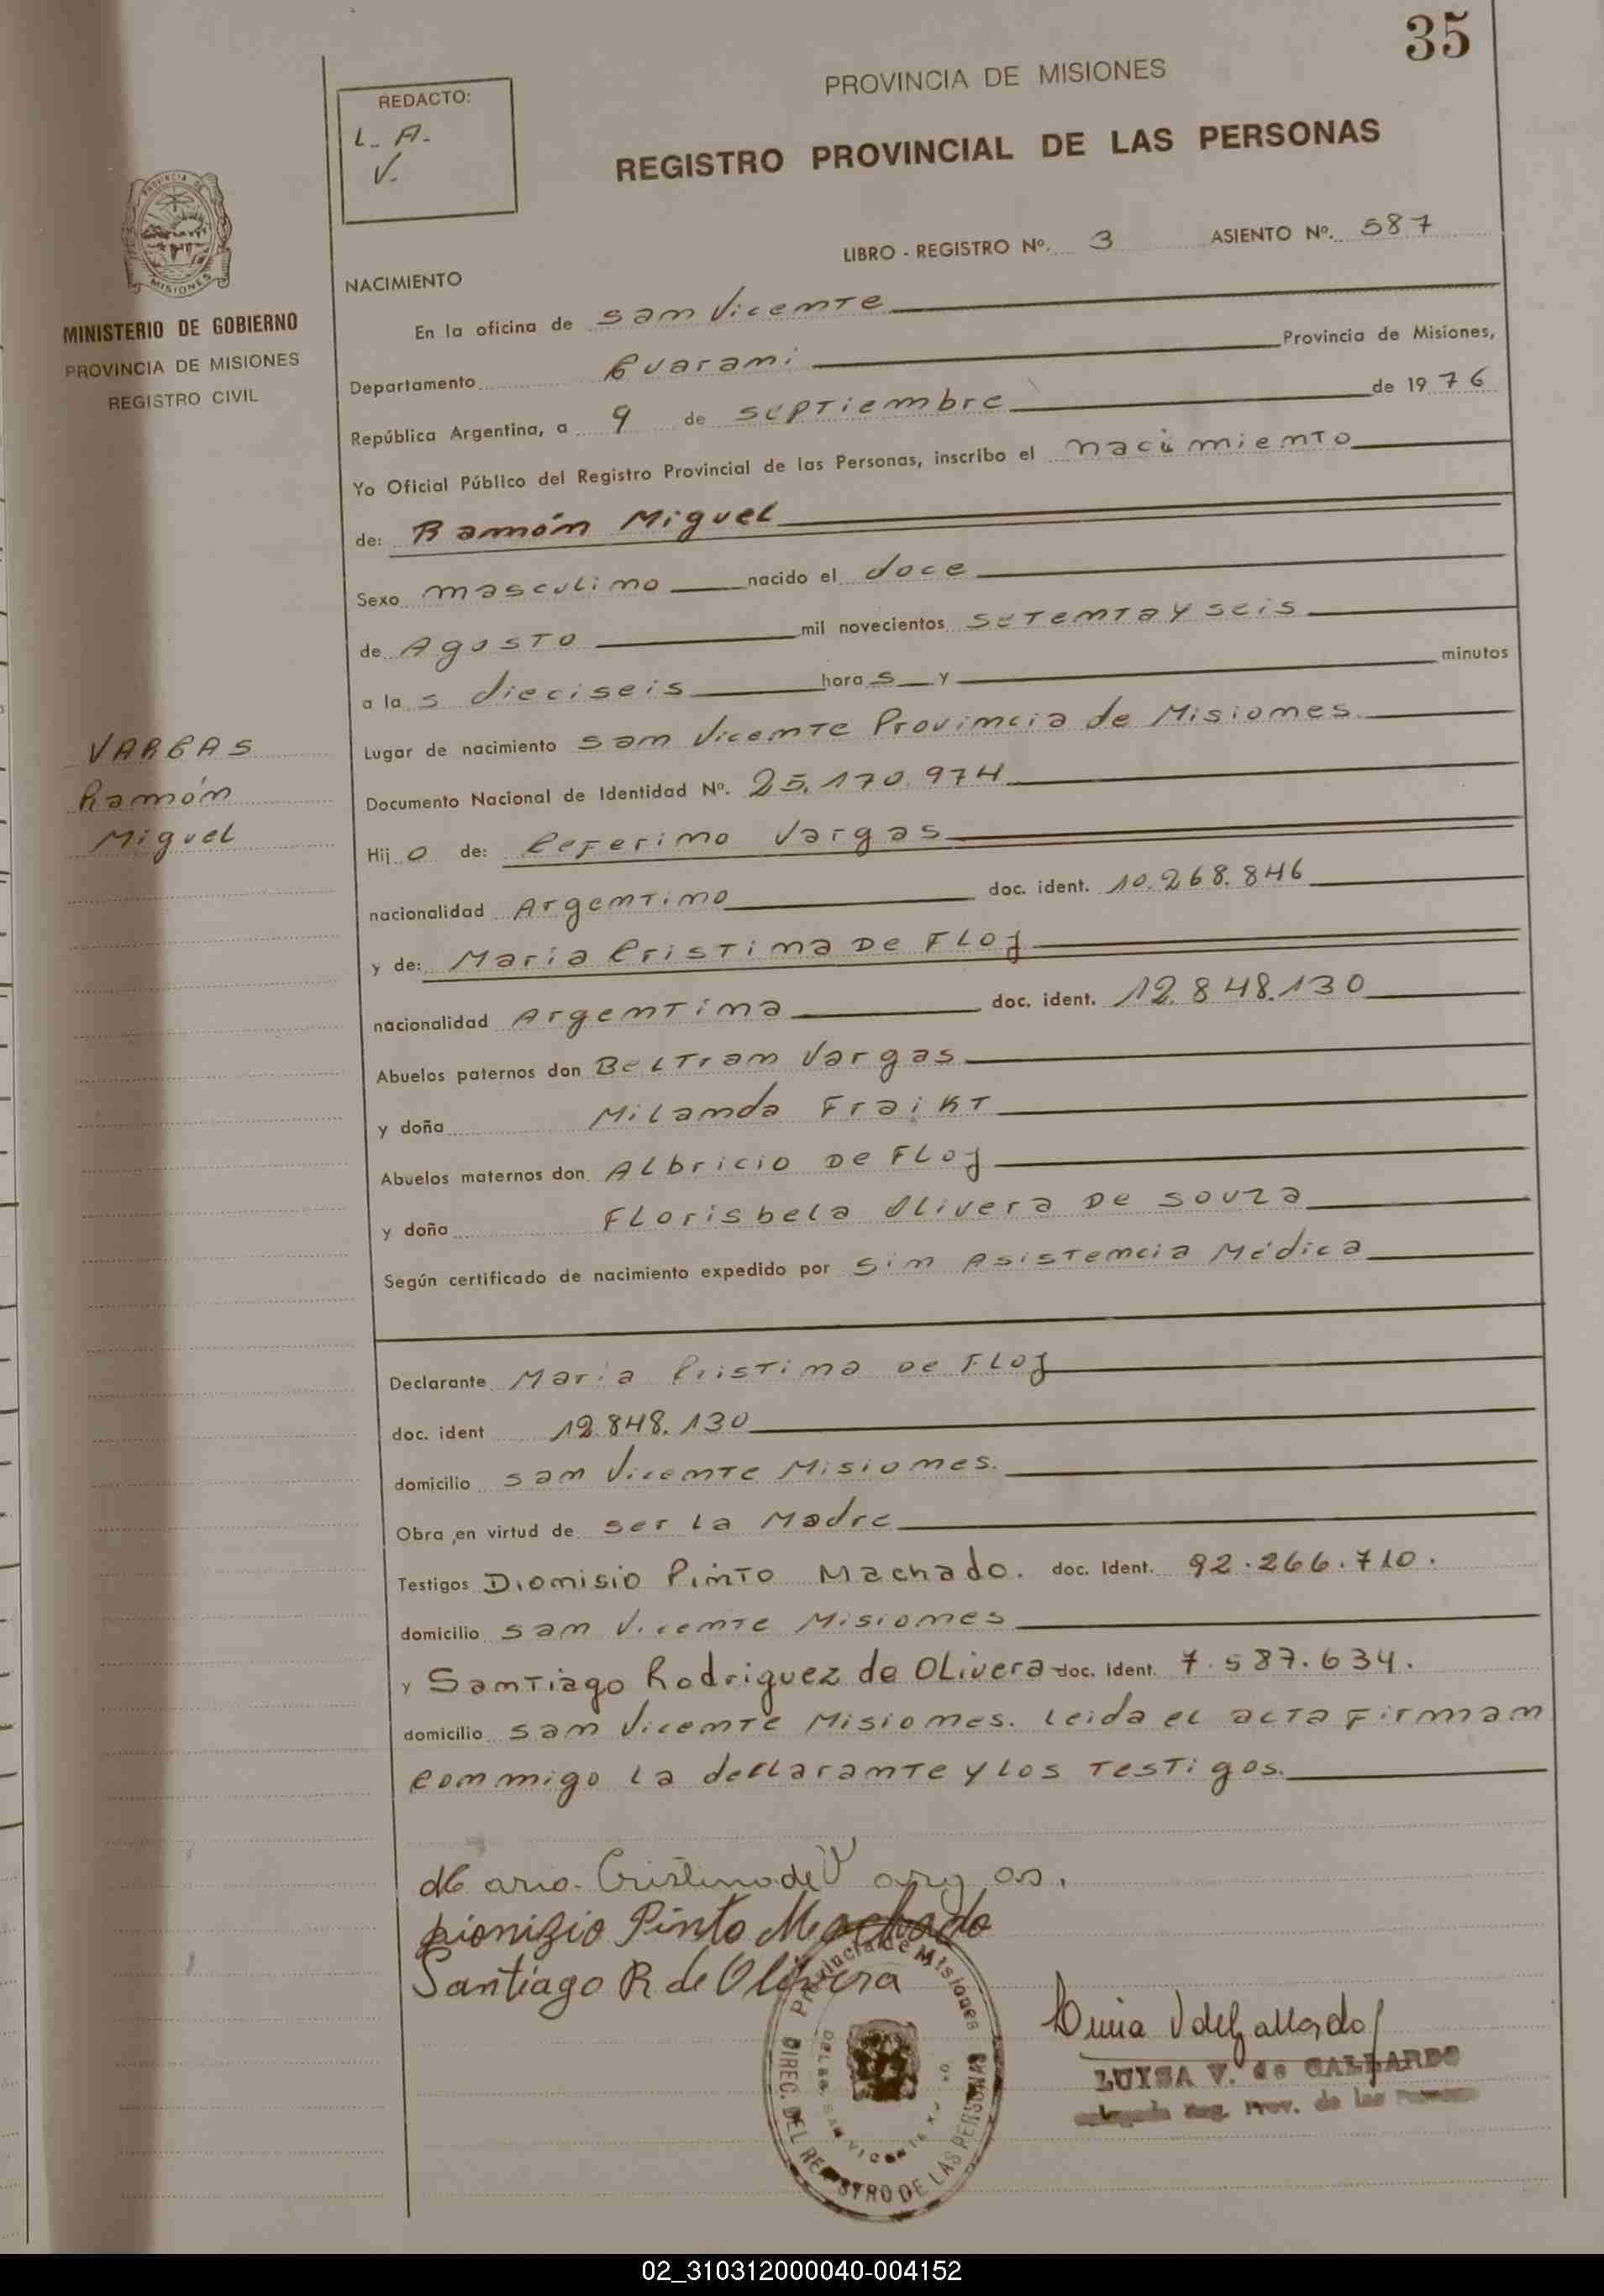 35
PROVINCIA DE MISIONES
REGISTRO PROVINCIAL DE LAS PERSONAS
REDACTO:
L. A.
V.
LIBRO - REGISTRO Nº. 3 ASIENTO Nº. 587
MINISTERIO DE GOBIERNO
PROVINCIA DE MISIONES
REGISTRO CIVIL
NACIMIENTO
En la oficina de San Vicente
Departamento Guarani Provincia de Misiones,
República Argentina, a 9 de septiembre de 1976
Yo Oficial Público del Registro Provincial de las Personas, inscribo el nacimiento
de: Ramón Miguel
Sexo masculino nacido el doce
de Agosto mil novecientos setenta y seis
a las dieciseis horas y minutos
Lugar de nacimiento San Vicente Provincia de Misiones
VARGAS
Ramón
Miguel
Documento Nacional de Identidad Nº. 25.170.974
Hijo de: Ceferino Vargas
nacionalidad Argentino doc. ident. 10.268.846
y de: María Cristina De Floj
nacionalidad Argentina doc. ident. 12.848.130
Abuelos paternos don Beltran Vargas
y doña Milanda Fraikt
Abuelos maternos don Albricio De Floj
y doña Florisbela Olivera De Souza
Según certificado de nacimiento expedido por Sin Asistencia Médica
Declarante María Cristina De Floj
doc. ident 12.848.130
domicilio San Vicente Misiones.
Obra en virtud de ser la Madre
Testigos Dionisio Pinto Machado. doc. Ident. 92.266.710.
domicilio San Vicente Misiones
y Santiago Rodriguez de Olivera doc. Ident. 7.587.634.
domicilio San Vicente Misiones. Leida el acta firman
conmigo la declarante y los testigos.
Maria Cristina de Vargas.
Dionizio Pinto Machado
Santiago R de Olivera
Provincia de Misiones
DIREC. DEL REGISTRO DE LAS PERSONAS
LUISA V. de GALLARDO
Reg. Prov. de las
02_310312000040-004152